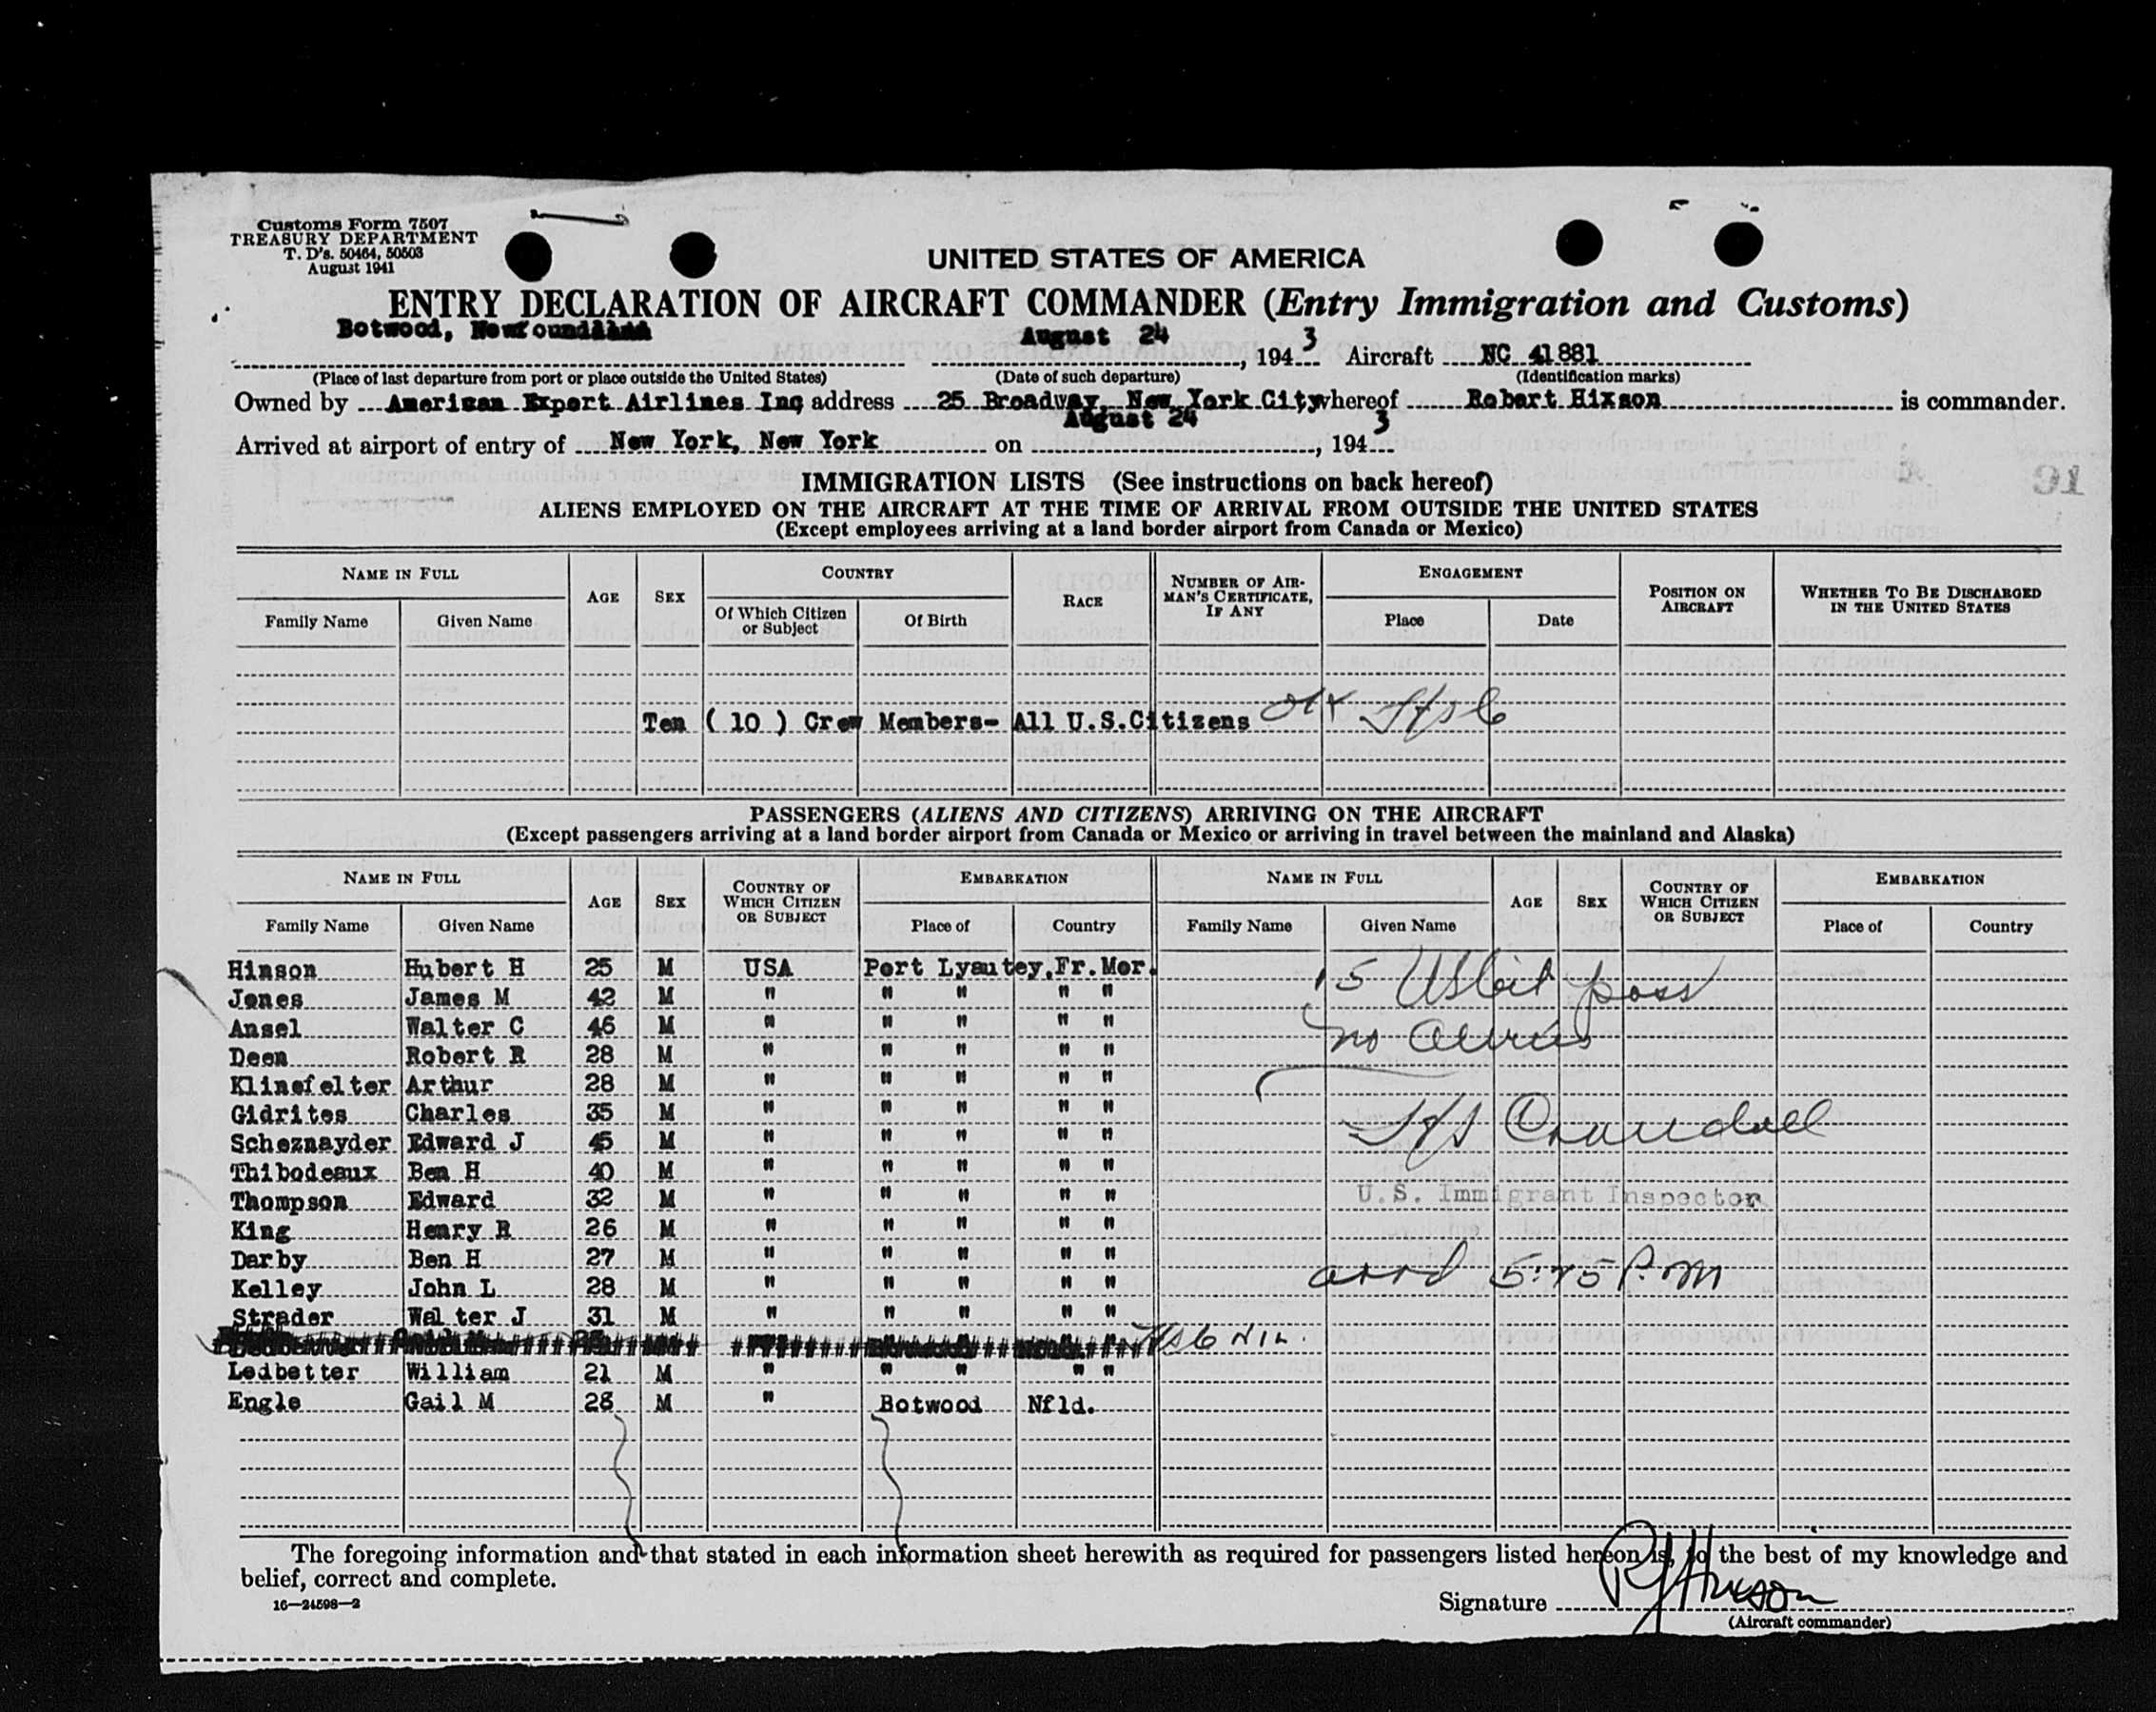 Customs Form 7507
TREASURY DEPARTMENT
T. D's. 50464, 50503
August 1941
UNITED STATES OF AMERICA
ENTRY DECLARATION OF AIRCRAFT COMMANDER (Entry Immigration and Customs)
Botwood, Newfoundland August 24, 1943 Aircraft NC 41881
(Place of last departure from port or place outside the United States) (Date of such departure) (Identification marks)
Owned by American Export Airlines Inc address 25 Broadway, New York City whereof Robert Hixson is commander.
Arrived at airport of entry of New York, New York on August 24, 1943
IMMIGRATION LISTS (See instructions on back hereof)
ALIENS EMPLOYED ON THE AIRCRAFT AT THE TIME OF ARRIVAL FROM OUTSIDE THE UNITED STATES
(Except employees arriving at a land border airport from Canada or Mexico)
NAME IN FULL AGE SEX COUNTRY RACE NUMBER OF AIRMAN'S CERTIFICATE, IF ANY ENGAGEMENT POSITION ON AIRCRAFT WHETHER TO BE DISCHARGED IN THE UNITED STATES
Family Name Given Name Of Which Citizen or Subject Of Birth Place Date
Ten ( 10 ) Crew Members- All U.S.Citizens
PASSENGERS (ALIENS AND CITIZENS) ARRIVING ON THE AIRCRAFT
(Except passengers arriving at a land border airport from Canada or Mexico or arriving in travel between the mainland and Alaska)
NAME IN FULL AGE SEX COUNTRY OF WHICH CITIZEN OR SUBJECT EMBARKATION NAME IN FULL AGE SEX COUNTRY OF WHICH CITIZEN OR SUBJECT EMBARKATION
Family Name Given Name Place of Country Family Name Given Name Place of Country
Hinson Hubert H 25 M USA Port Lyautey,Fr.Mor.
Jones James M 42 M " " " " "
Ansel Walter C 46 M " " " " "
Deen Robert R 28 M " " " " "
Klinefelter Arthur 28 M " " " " "
Gidrites Charles 35 M " " " " "
Scheznayder Edward J 45 M " " " " "
Thibodeaux Ben H 40 M " " " " "
Thompson Edward 32 M " " " " "
King Henry R 26 M " " " " "
Darby Ben H 27 M " " " " "
Kelley John L 28 M " " " " "
Strader Walter J 31 M " " " " "
Ledbetter William 21 M " " " " "
Engle Gail M 28 M " Botwood Nfld.
15 US Cit pass
no Aliens
Crandall
U.S. Immigrant Inspector
P.M
The foregoing information and that stated in each information sheet herewith as required for passengers listed hereon is, to the best of my knowledge and
belief, correct and complete.
16—24598—2
Signature R J Hixson
(Aircraft commander)